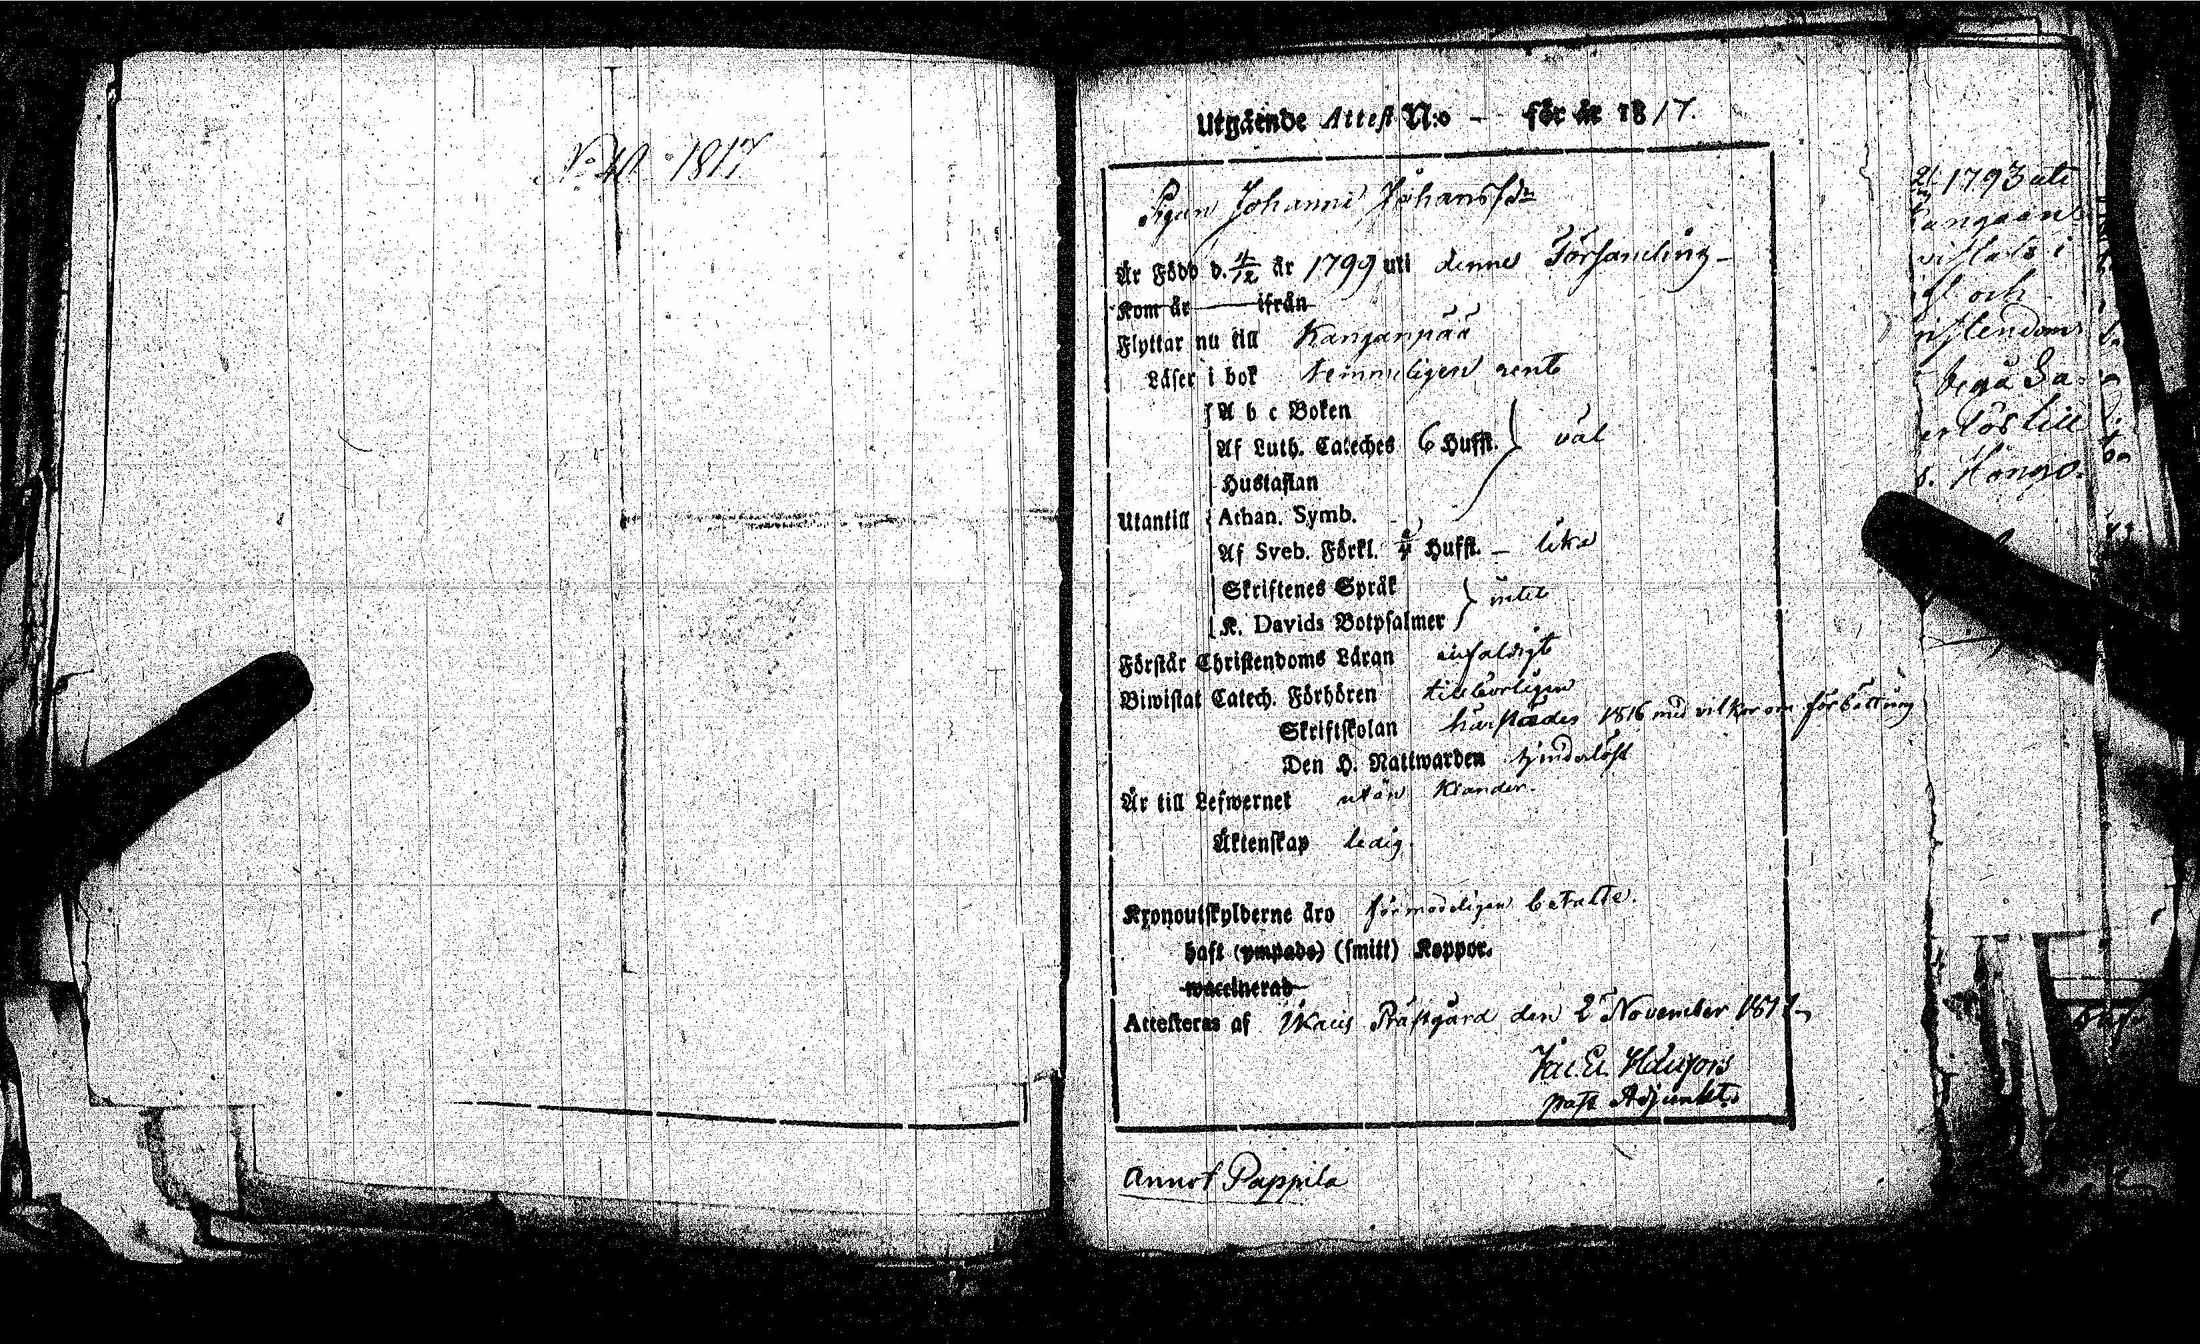 No 40. 1817
Utgående Attest N:o - för år 1817.
Pigan Johanna Johansdr
Är Född d. 4/12 år 1799 uti denna Församling -
Kom år ifrån
Flyttar nu till Kanganpää
Läser i bok temmeligen rent
A b c Boken
Af Luth. Cateches 6 Hufst. väl
Hustaflan
Utantill Athan. Symb.
Af Sveb. Förkl. Hufst. - lika
Skriftenes Språk
intet
K. Davids Botpsalmer
Förstår Christendoms Läran enfaldigt
Biwistat Catech. Förhören tillbörligen
Skriftskolan härstädes 1816 med vilkor om förbättring
Den H. Nattwarden hinderlöst
Är till Lefwernet utan klander.
Äktenskap ledig.
Kronoutskylderne äro förmodeligen betalte.
haft (ympade) (smitt) Koppor.
waccinerad
Attesteras af Ikalis Prästgård den 2 November 1817
past. Adjunkt.
Annot Pappila
1793 uti
och